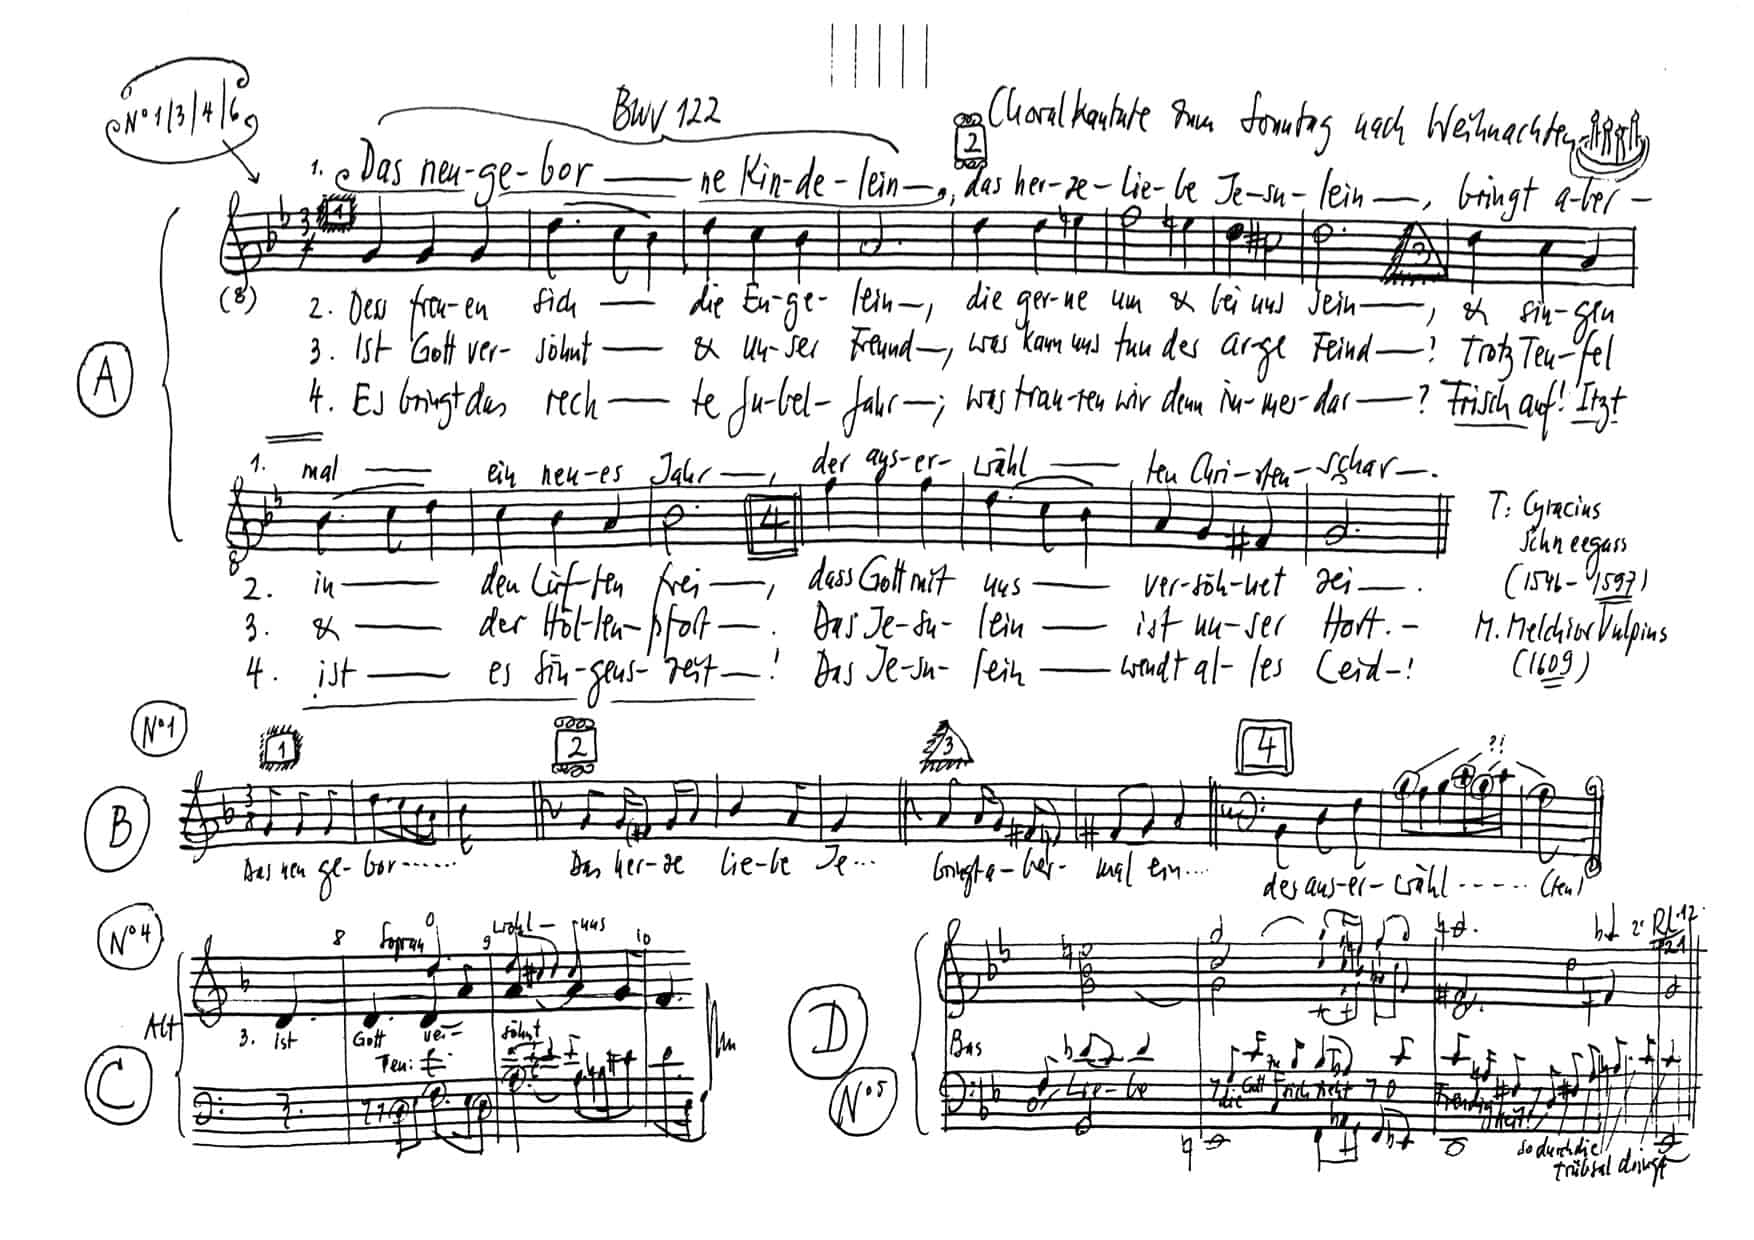 BWV 122
Nº 1/3/4/6
Choralkantate zum Sonntag nach Weihnachten
2
1. Das neu-ge-bor — ne Kin-de-lein —, das her-ze-lie-be Je-su-lein —, bringt a-ber-
1
3
4
3
(8)
2. Dess freu-en sich — die En-ge-lein —, die ger-ne um & bei uns sein —, & sin-gen
3. Ist Gott ver-söhnt — & un-ser Freund —, was kann uns tun des ar-ge Feind —? Trotz Teu-fel
A
4. Es bringt das rech — te Ju-bel-Jahr —; was trau-ren wir denn im-mer-dar —? Frisch auf! Itzt
1. mal — ein neu-es Jahr —, der aus-er-wähl — ten Chri-sten-schar —.
4
8
T: Cyracius
Schneegass
2. in — den Lüf-ten frei —, dass Gott mit uns — ver-söh-net sei —.
(1546-1597)
3. & — der Höl-len-pfort —. Das Je-su-lein — ist un-ser Hort. -
M. Melchior Vulpius
4. ist — es Sin-gens-zeit —! Das Je-su-lein — wendt al-les Leid -!
(1609)
Nº 1
1
2
3
4
?!
B
3
8
Das neu ge-bor ......
Das her-ze lie-be Je...
bringt a-ber-mal ein....
des aus-er-wähl ----- (ten)
Nº 4
8
Sopran
9
10
Alt
3. ist Gott ver- söhnt
Ten:
C
RL 12
21
D
Nº 5
Bas
Lie-be
die Gott sich nicht
Freudigkeit!
so durch die
Trübsal dringt